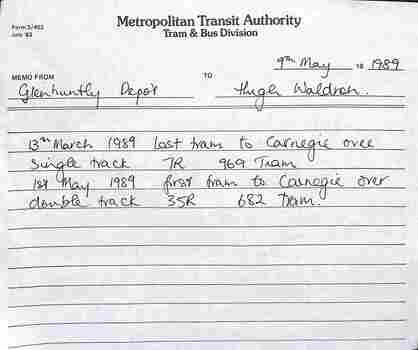 Form S/402
July '83
Metropolitan Transit Authority
Tram & Bus Division
9th May 19 1989
MEMO FROM TO
Glenhuntly Depot Hugh Waldron.
13th March 1989 last tram to Carnegie over
Single track 7R 969 Tram
1st May 1989 first tram to Carnegie over
double track 35R 682 Tram.